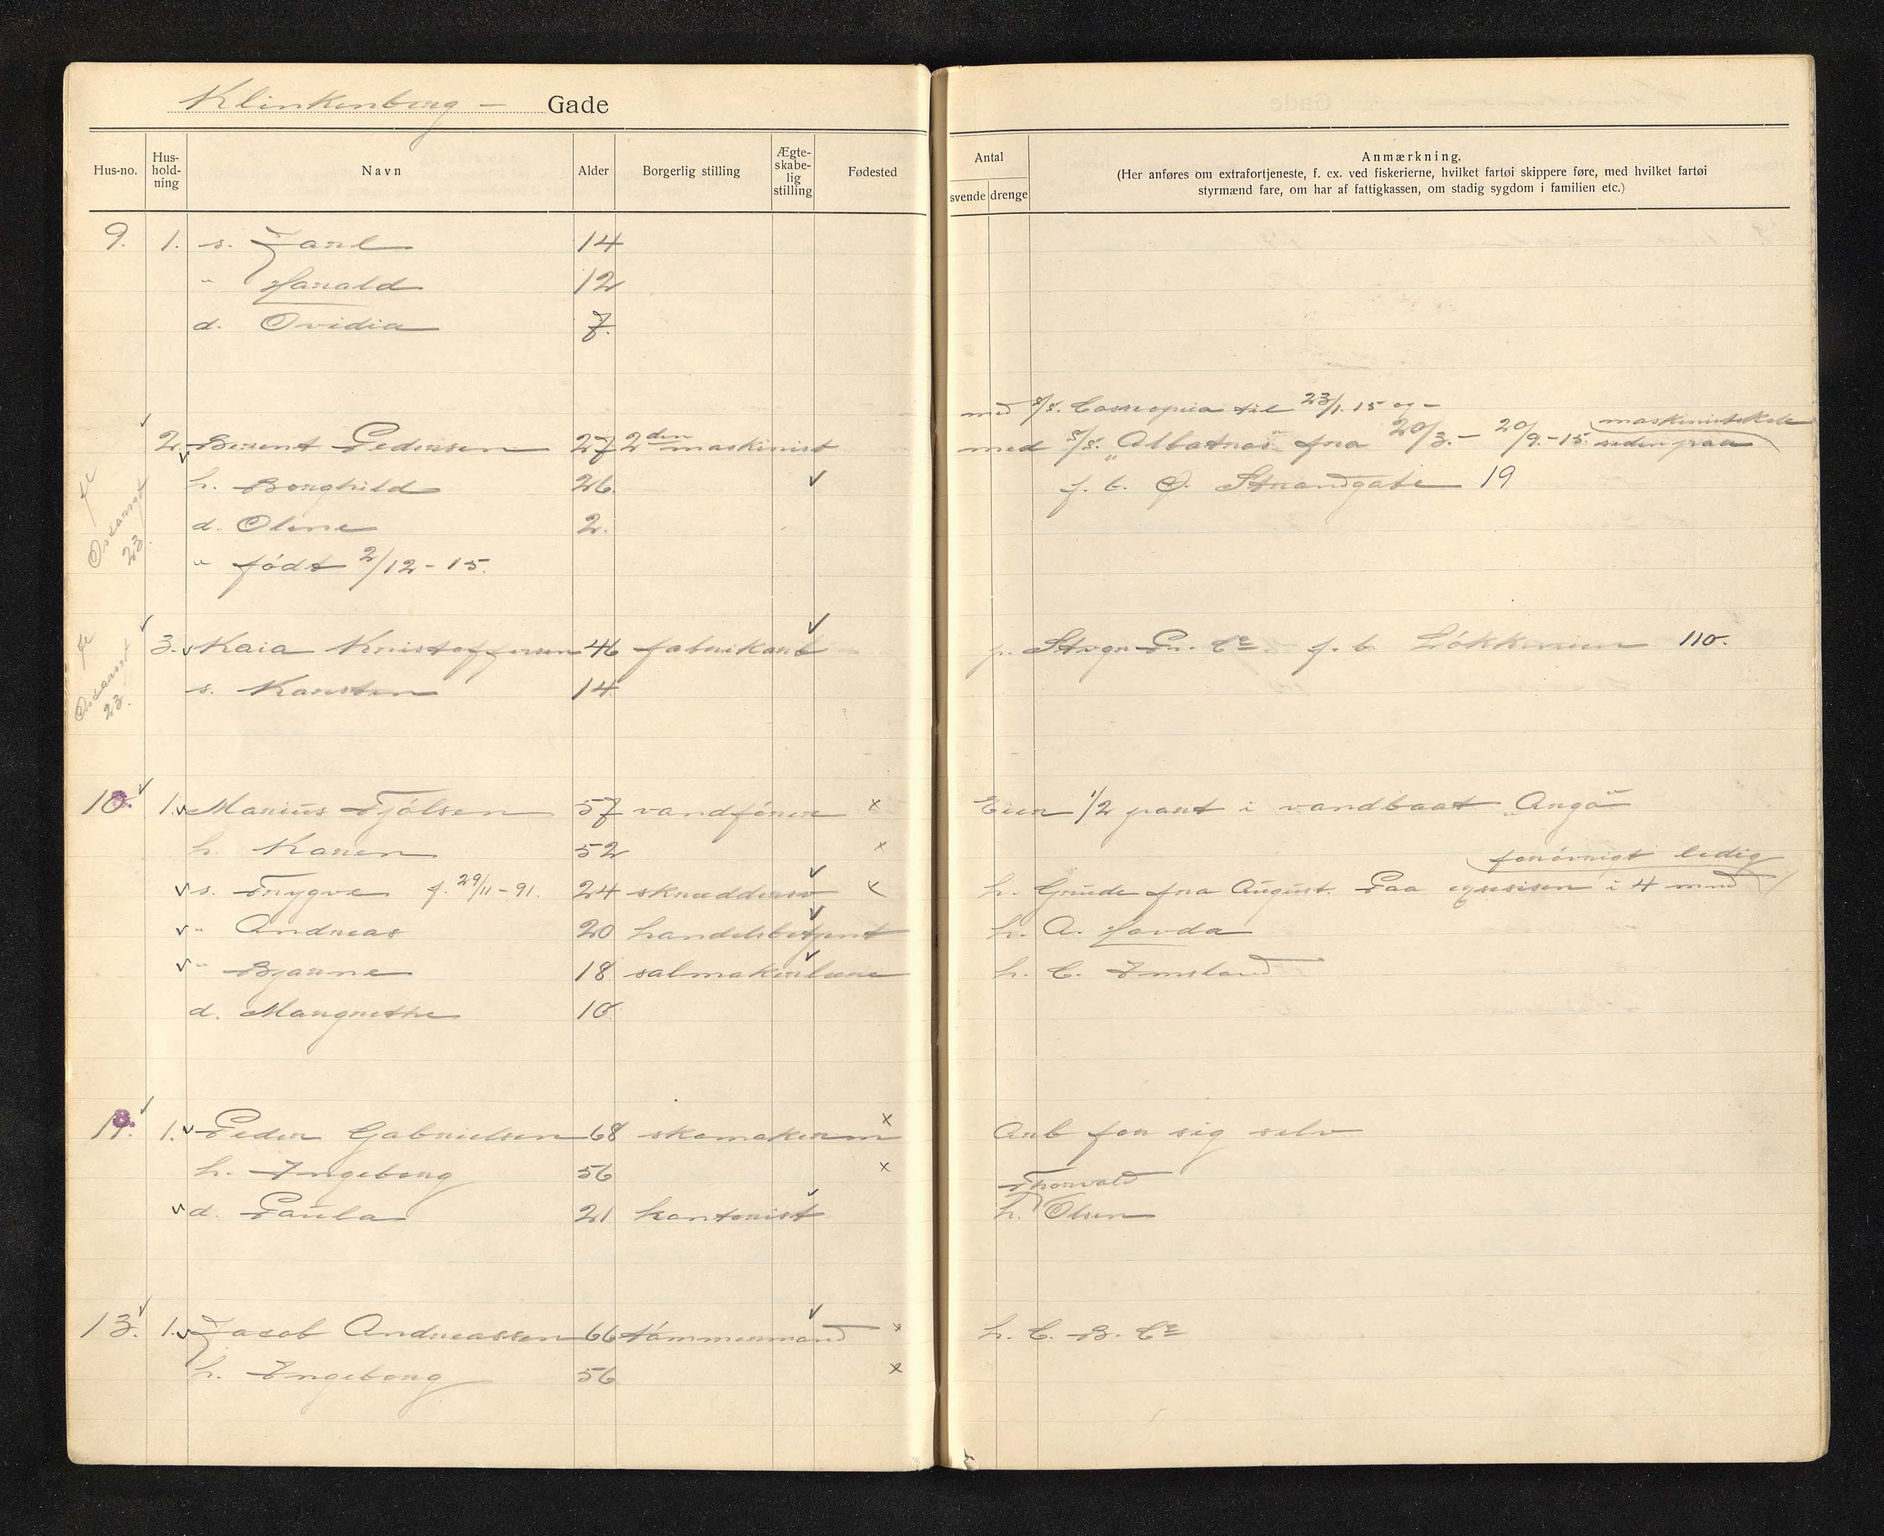 Klinkenberg - Gade
Hus-no. Hus-hold-ning Navn Alder Borgerlig stilling Ægte-skabe-lig stilling Fødested
Antal svende drenge
Anmærkning.
(Her anføres om extrafortjeneste, f. ex. ved fiskerierne, hvilket fartøi skippere føre, med hvilket fartøi
styrmænd fare, om har af fattigkassen, om stadig sygdom i familien etc.)
9. 1. s. Jarl 14
" Harald 12
d. Ovidia 7.
med s/s. Cassiopeia til 23/1. 15 og -
2. Berent Pedersen 27 2den maskinist med s/s. "Albatros" fra 20/3. - 20/9. - 15. siden paa maskinistskole
h. Borghild 26. f. b. Ø. Strandgate 19
d. Olene 2.
" født 2/12 - 15.
fl Osdaaret 23.
3. Kaia Kristoffersen 46 fabrikarb p. Stvgr Pr. Co. f. b. Løkkeveien 110.
s. Karsten 14
fl Osdaaret 23.
10. 1. Marius Fjølsen 57 vandfører x Eier 1/2 part i vandbaat "Argo"
h. Karen 52 x
forøvrigt ledig
s. Trygve f. 29/11 - 91. 24 skræddersv x h. Grude fra August. Paa exersisen i 4 mnd
" Andreas 20 handelsbetjent h. A. Havda
" Bjarne 18 salmakerlære h. C. Imsland
d. Margrethe 10
11. 8. 1. Peder Gabrielsen 68 skomakerm x Arb for sig selv
h. Ingeborg 56 x
Thorvald
d. Paula 21 kontorist h. Olsen
13. 1. Jacob Andreassen 66 tømmermand x h. C. B. Co
h. Ingeborg 56 x